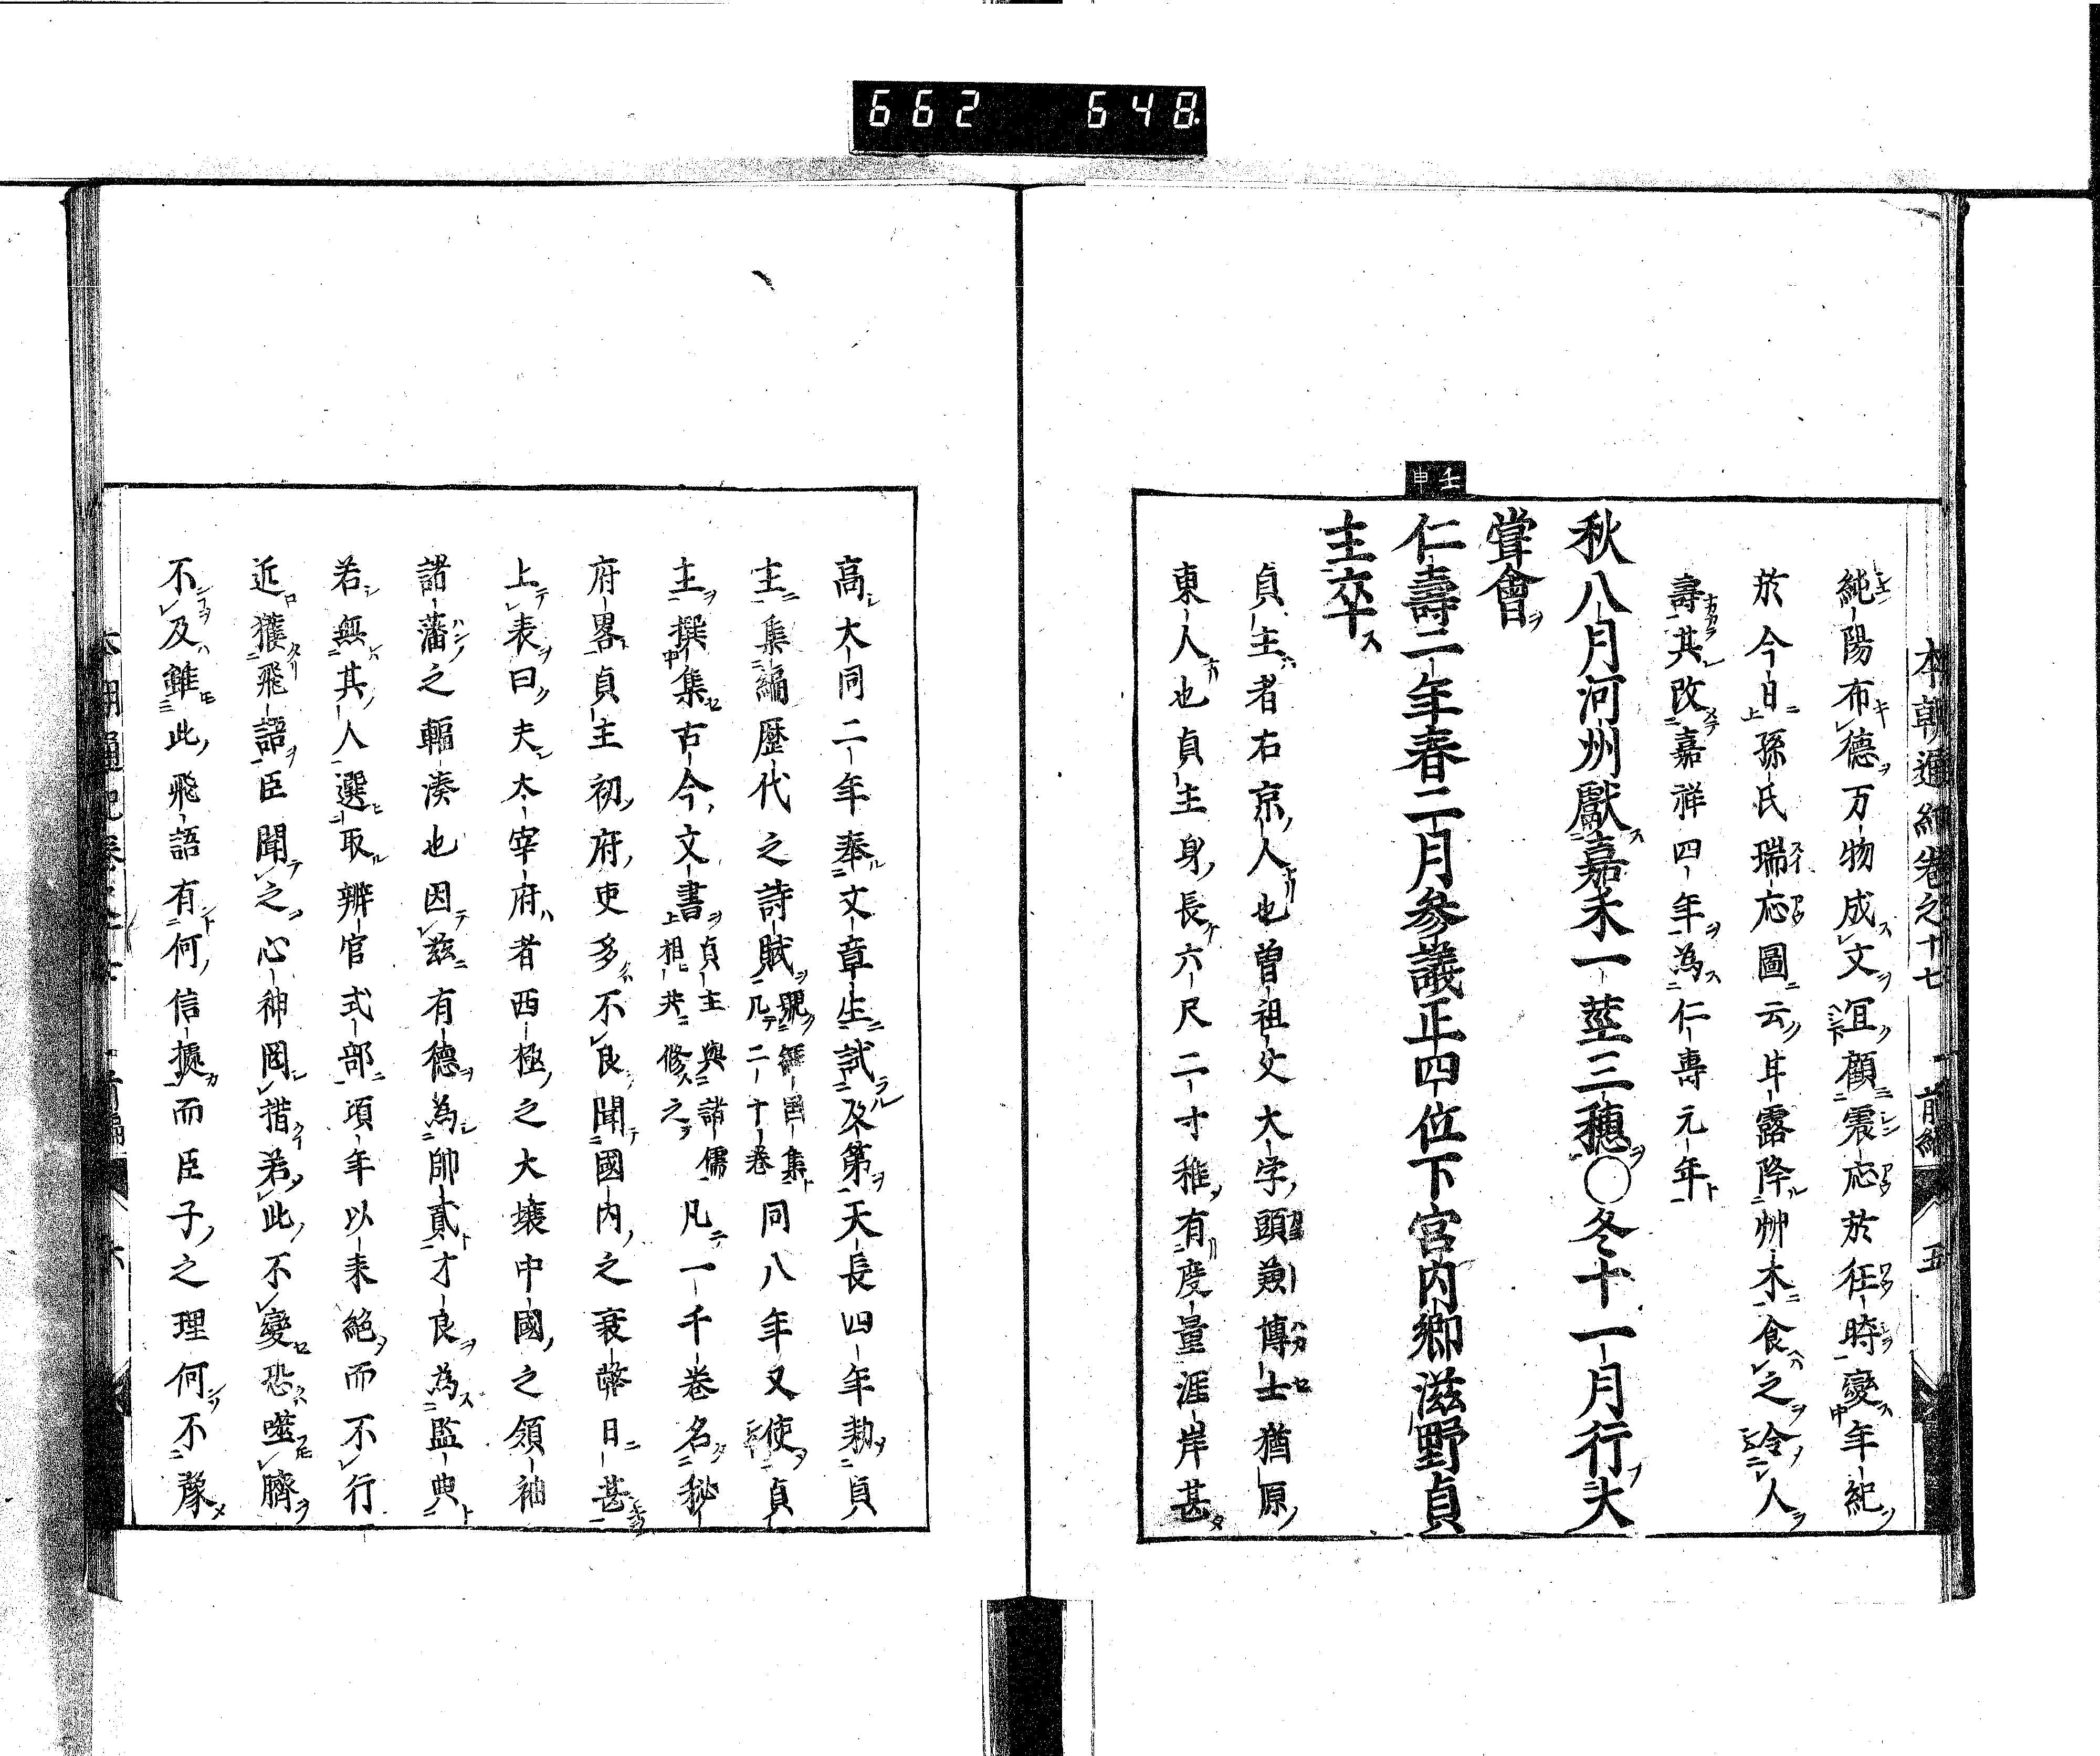 662 648
本朝通紀卷之十七 前編 五
純陽布德万物成文冝顧震応於在時變年紀
於今日孫氏瑞応圖云甘露降艸木食之令人
壽其改嘉祥四年為仁壽元年
秋八月河州獻嘉禾一莖三穗〇冬十一月行大
嘗會
壬申
仁壽二年春二月參議正四位下宮内卿滋野貞
主卒
貞主者右京人也曽祖父大字頭兼博士猶原
東人也貞主身長六尺二寸稚有度量涯岸甚
高大同二年奉文章生試及第天長四年勅貞
主集編歴代之詩賦號經國集凡二十卷同八年又使貞
主撰集古今文書貞主與諸儒相共修之凡一千卷名秘
府畧貞主初府吏多不良聞國内之衰弊日甚
上表曰夫太宰府者西極之大壤中國之領袖
諸藩之輻湊也因茲有德為帥貳才良為監典
若無其人選取辨官式部項年以来絶而不行
近獲飛語臣聞之心神罔措若此不變恐噬臍
不及雖此飛語有何信據而臣子之理何不豫